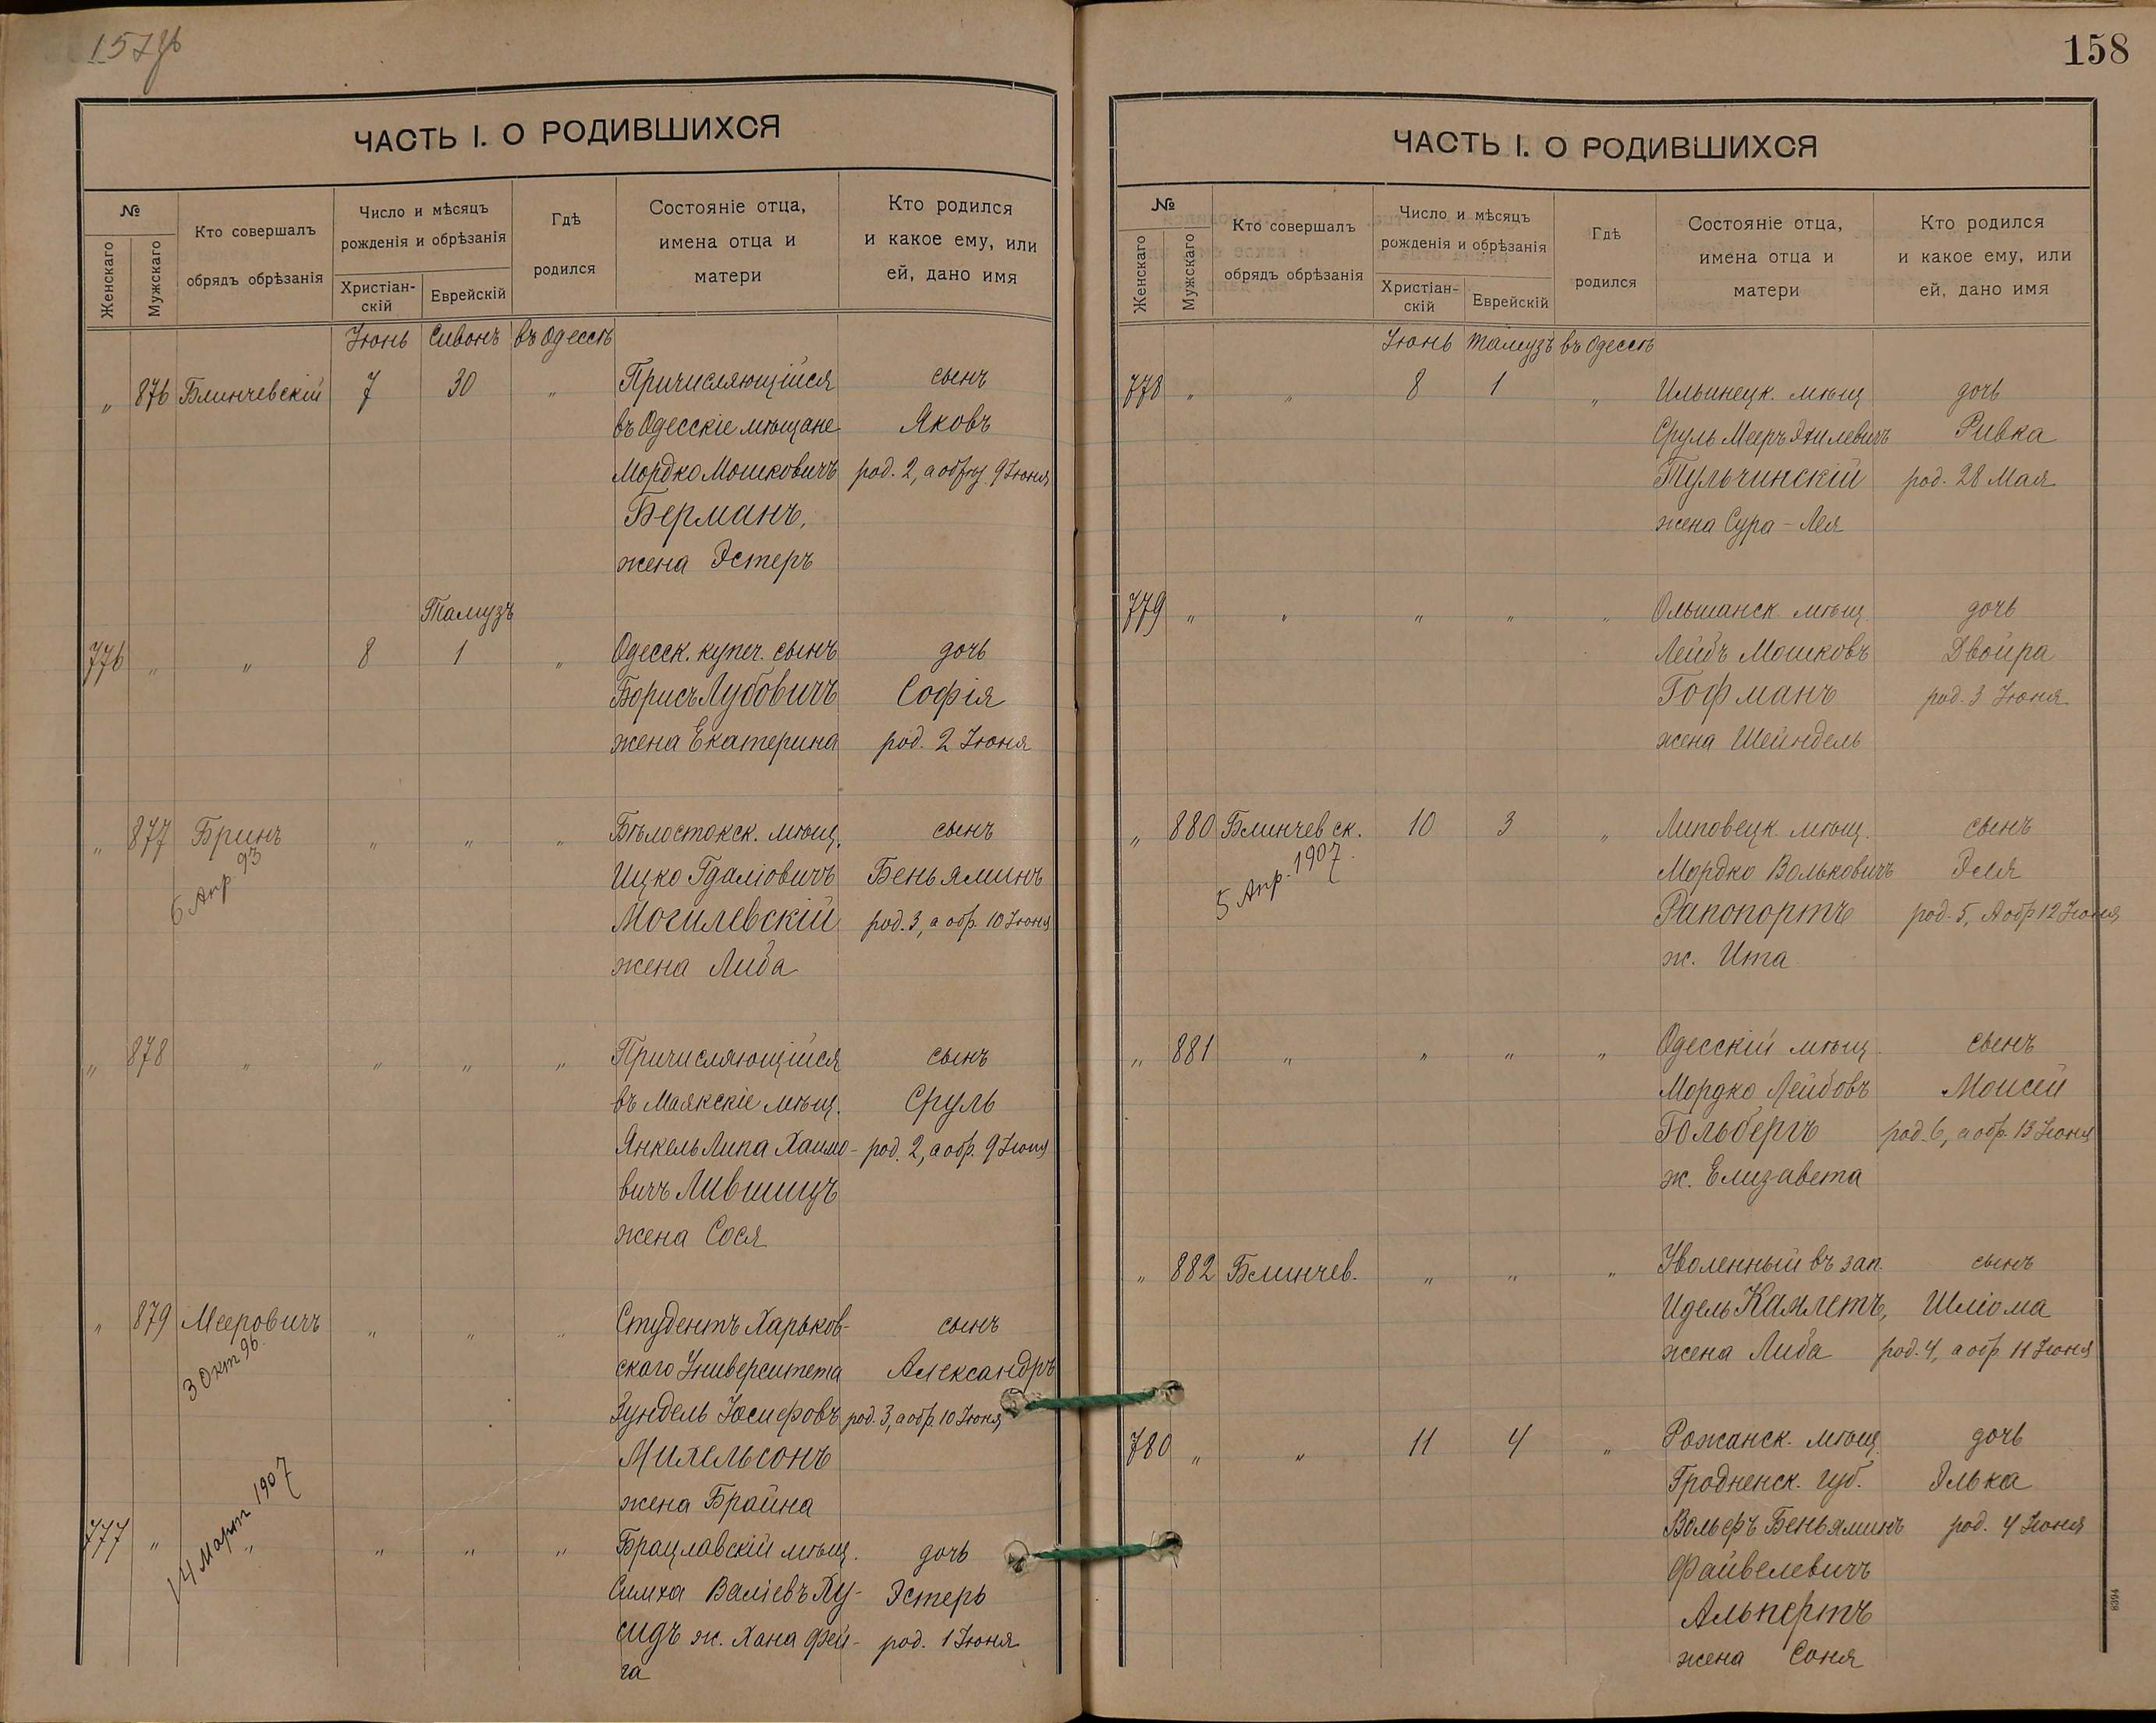 157 об
ЧАСТЬ I. О РОДИВШИХСЯ
№
Женскаго
Мужскаго
Кто совершалъ
обрядъ обрѣзанія
Число и мѣсяцъ
рожденія и обрѣзанія
Христіан-
скій
Еврейскій
Гдѣ
родился
Состояніе отца,
имена отца и
матери
Кто родился
и какое ему, или
ей, дано имя
Іюнь Сивонъ въ Одессѣ
„ 876 Блинчевскій 7 30 „ Причисляющійся сынъ
въ Одесскіе мѣщане Яковъ
Мордко Мошковичъ род. 2, а обрѣз. 9 Іюня
Берманъ,
жена Эстеръ
Тамузъ
776 „ „ 8 1 „ Одесск. купеч. сынъ дочь
Борисъ Лубовичъ Софія
жена Екатерина род. 2 Іюня
„ 877 Бринъ „ „ „ Бѣлостокск. мѣщ. сынъ
6 Апр. 93
Ицко Гдаліовичъ Беньяминъ
Могилевскій род. 3, а обр. 10 Іюня
жена Либа
„ 878 „ „ „ „ Причисляющійся сынъ
въ Маякскіе мѣщ. Сруль
Янкель Липа Хаимо- род. 2, а обр. 9 Іюня
вичъ Лившицъ
жена Сося
„ 879 Мееровичъ „ „ „ Студентъ Харьков- сынъ
3 Окт 96.
скаго Университета Александръ
Зундель Іосифовъ род. 3, а обр. 10 Іюня
Михельсонъ
жена Брайна
14 Март 1907
777 „ „ „ „ „ Брацлавскій мѣщ. дочь
Симха Валіевъ Ху- Эстеръ
сидъ ж. Хана Фей- род. 1 Іюня
га
158
ЧАСТЬ I. О РОДИВШИХСЯ
№
Женскаго
Мужскаго
Кто совершалъ
обрядъ обрѣзанія
Число и мѣсяцъ
рожденія и обрѣзанія
Христіан-
скій
Еврейскій
Гдѣ
родился
Состояніе отца,
имена отца и
матери
Кто родился
и какое ему, или
ей, дано имя
Іюнь Тамузъ въ Одессѣ
778 „ „ 8 1 „ Ильинецк. мѣщ дочь
Сруль Мееръ Эхилевичъ Ривка
Тульчинскій род. 28 Мая
жена Сура-Лея
779 „ „ „ „ „ Ольшанск. мѣщ. дочь
Лейбъ Мошковъ Двойра
Гофманъ род. 3 Іюня
жена Шейндель
„ 880 Блинчевск. 10 3 „ Липовецк. мѣщ. сынъ
5 Апр. 1907.
Мордко Вольковичъ Эля
Рапопортъ род. 5, а обр 12 Іюня
ж. Ита
„ 881 „ „ „ „ Одесскій мѣщ. сынъ
Мордко Лейбовъ Моисей
Гольбергъ род. 6, а обр. 13 Іюня
ж. Елизавета
„ 882 Блинчев. „ „ „ Уволенный въ зап. сынъ
Идель Камлетъ, Шліома
жена Либа род. 4, а обр 11 Іюня
780 „ „ 11 4 „ Рожанск. мѣщ. дочь
Гродненск. губ. Элька
Вольфъ Беньяминъ род. 4 Іюня
Файвелевичъ
Альпертъ
жена Соня
8394